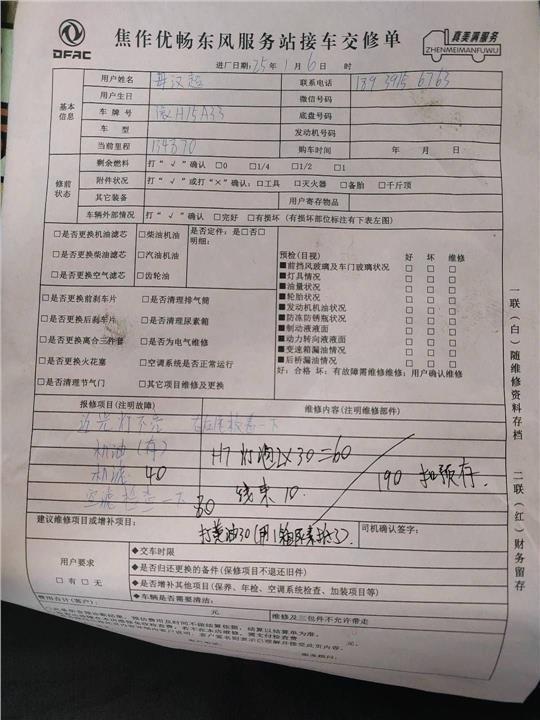 DFAC
焦作优畅东风服务站接车交修单
真美满服务
ZHENMEIMANFUWU
进厂日期: 25年 1月 6日 时
基本信息
用户姓名
联系电话
用户生日 微信号码
车牌号 豫H15A33 底盘号码
车型 发动机号码
当前里程 134370 购车时间 年 月 日
修前状态
剩余燃料 打“√”确认 □0 □1/4 □1/2 □1
附件状况 打“√”或打“×”确认: □工具 □灭火器 □备胎 □千斤顶
其它装备 用户寄存物品
车辆外部情况 打“√”确认 □完好 □有损坏 (有损坏部位标注有下表左图)
□是否更换机油滤芯 □柴油机油 是否定件: 是□否□
□是否更换柴油滤芯 □汽油机油 明细:
□是否更换空气滤芯 □齿轮油
□是否更换前刹车片 □是否清理排气筒
□是否更换后刹车片 □是否清理尿素箱
□是否更换离合三件套 □是否为电气维修
□是否更换火花塞 □空调系统是否正常运行
□是否清理节气门 □其它项目维修及更换
预检(目视) 好 坏 维修
■前挡风玻璃及车门玻璃状况 □ □ □
■灯具情况 □ □ □
■油量状况 □ □ □
■轮胎状况 □ □ □
■发动机机油状况 □ □ □
■防冻防锈瓶状况 □ □ □
■制动液液面 □ □ □
■动力转向液液面 □ □ □
■变速箱漏油情况 □ □ □
■后桥漏油情况 □ □ □
好: 合格 坏: 有故障需维修维修: 用户确认维修
报修项目(注明故障) 维修内容(注明维修部件)
机油(有) H7 灯泡2X30=60
机滤 40 190 扣预存.
空滤检查一下 80 线束 10.
建议维修项目或增补项目: 司机确认签字:
用户要求
□有 □无
◆交车时限
◆是否归还更换的备件(保修项目不退还旧件)
◆是否增补其他项目(保养、年检、空调系统检查、加装项目等)
◆车辆是否需要清洁:
费用合计(客户): 元 维修及三包件不允许带走
一联(白)随维修资料存档
二联(红)财务留存